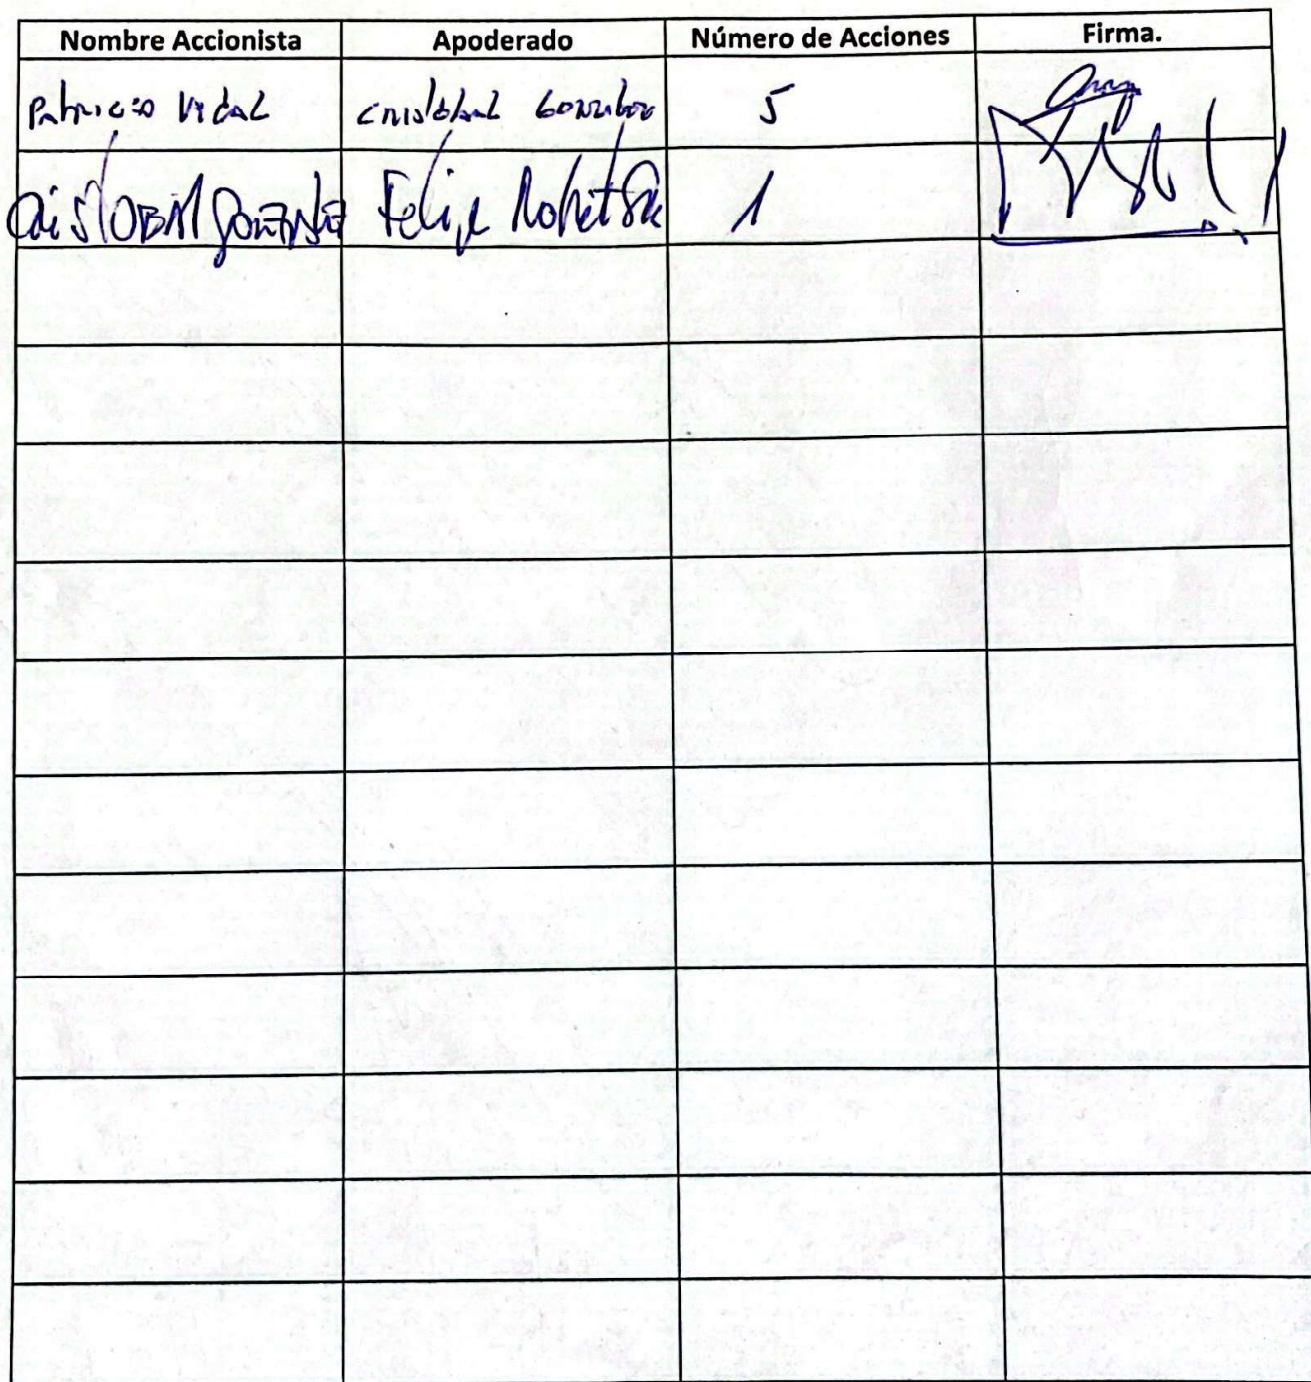 Nombre Accionista Apoderado Número de Acciones Firma.
Patricio Vidal Cristobal Gonzalez 5
CristOBAl GonzAlez Felipe 1